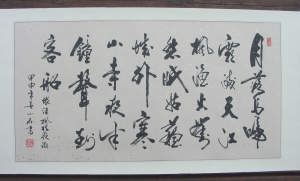 月落烏啼
霜滿天江
楓漁火對
愁眠姑蘇
城外寒
山寺夜半
鐘聲到
客船
張繼楓橋夜泊
甲申年
書